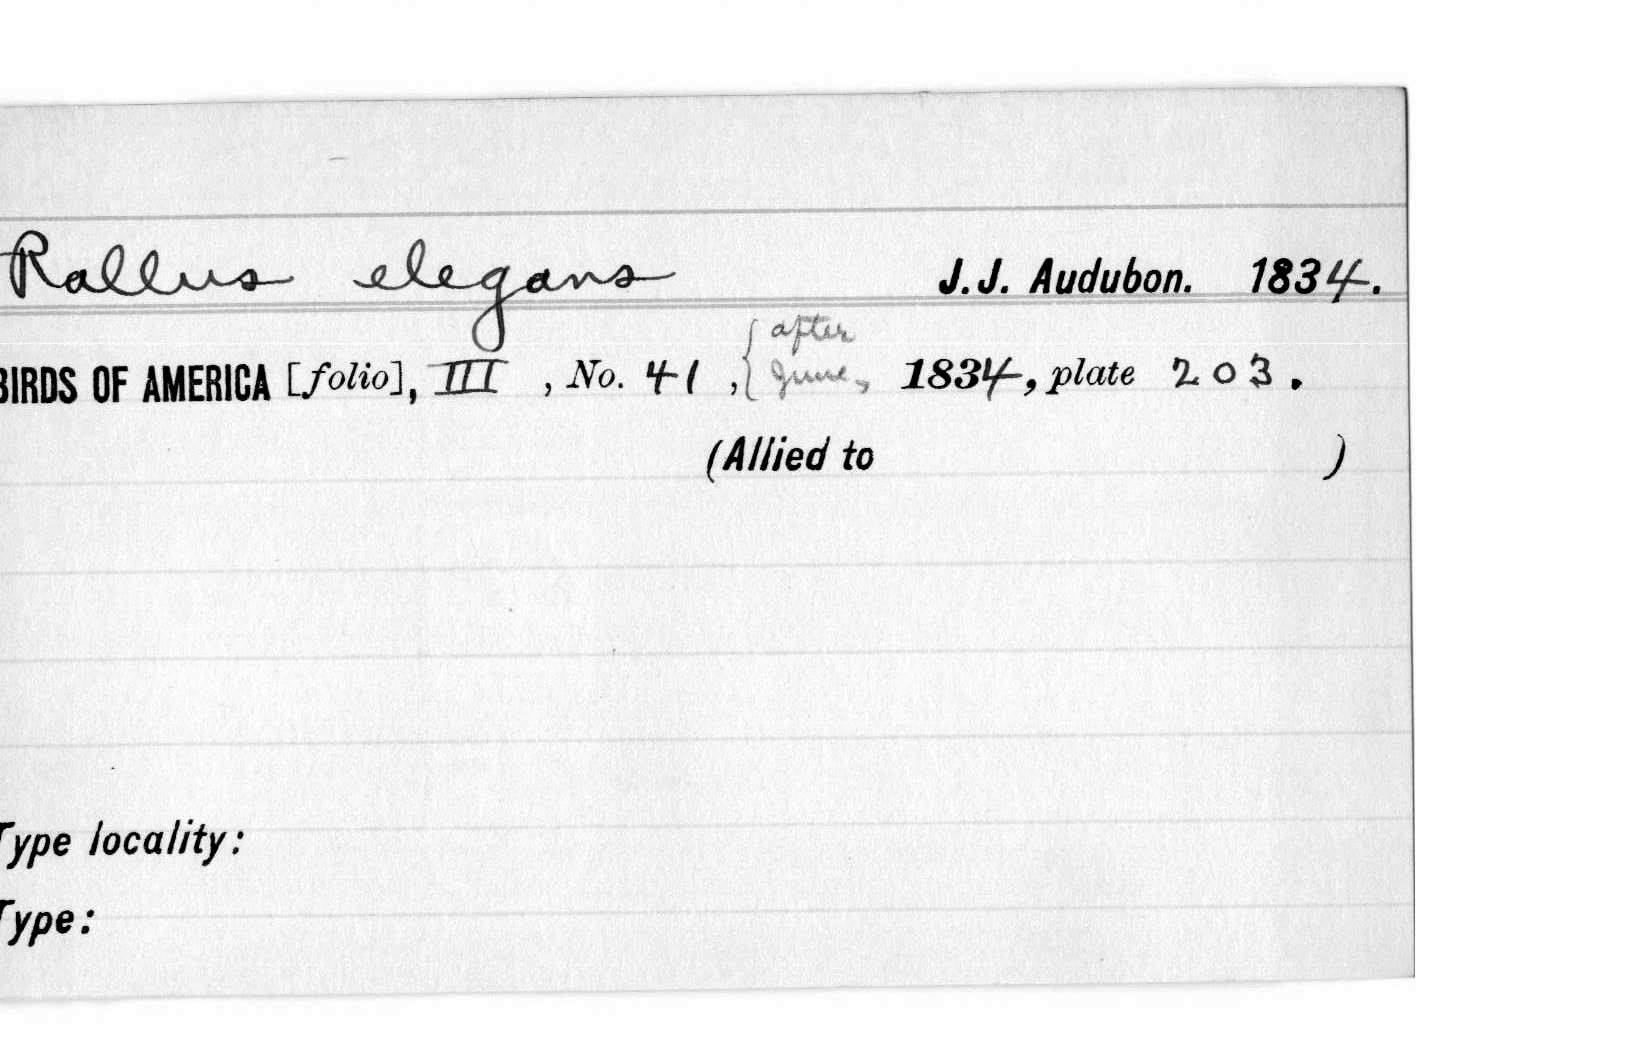 Rallus elegans J.J. Audubon. 1834.
BIRDS OF AMERICA [folio], III , No. 41 , { after June, 1834, plate 203.
(Allied to )
Type locality:
Type: